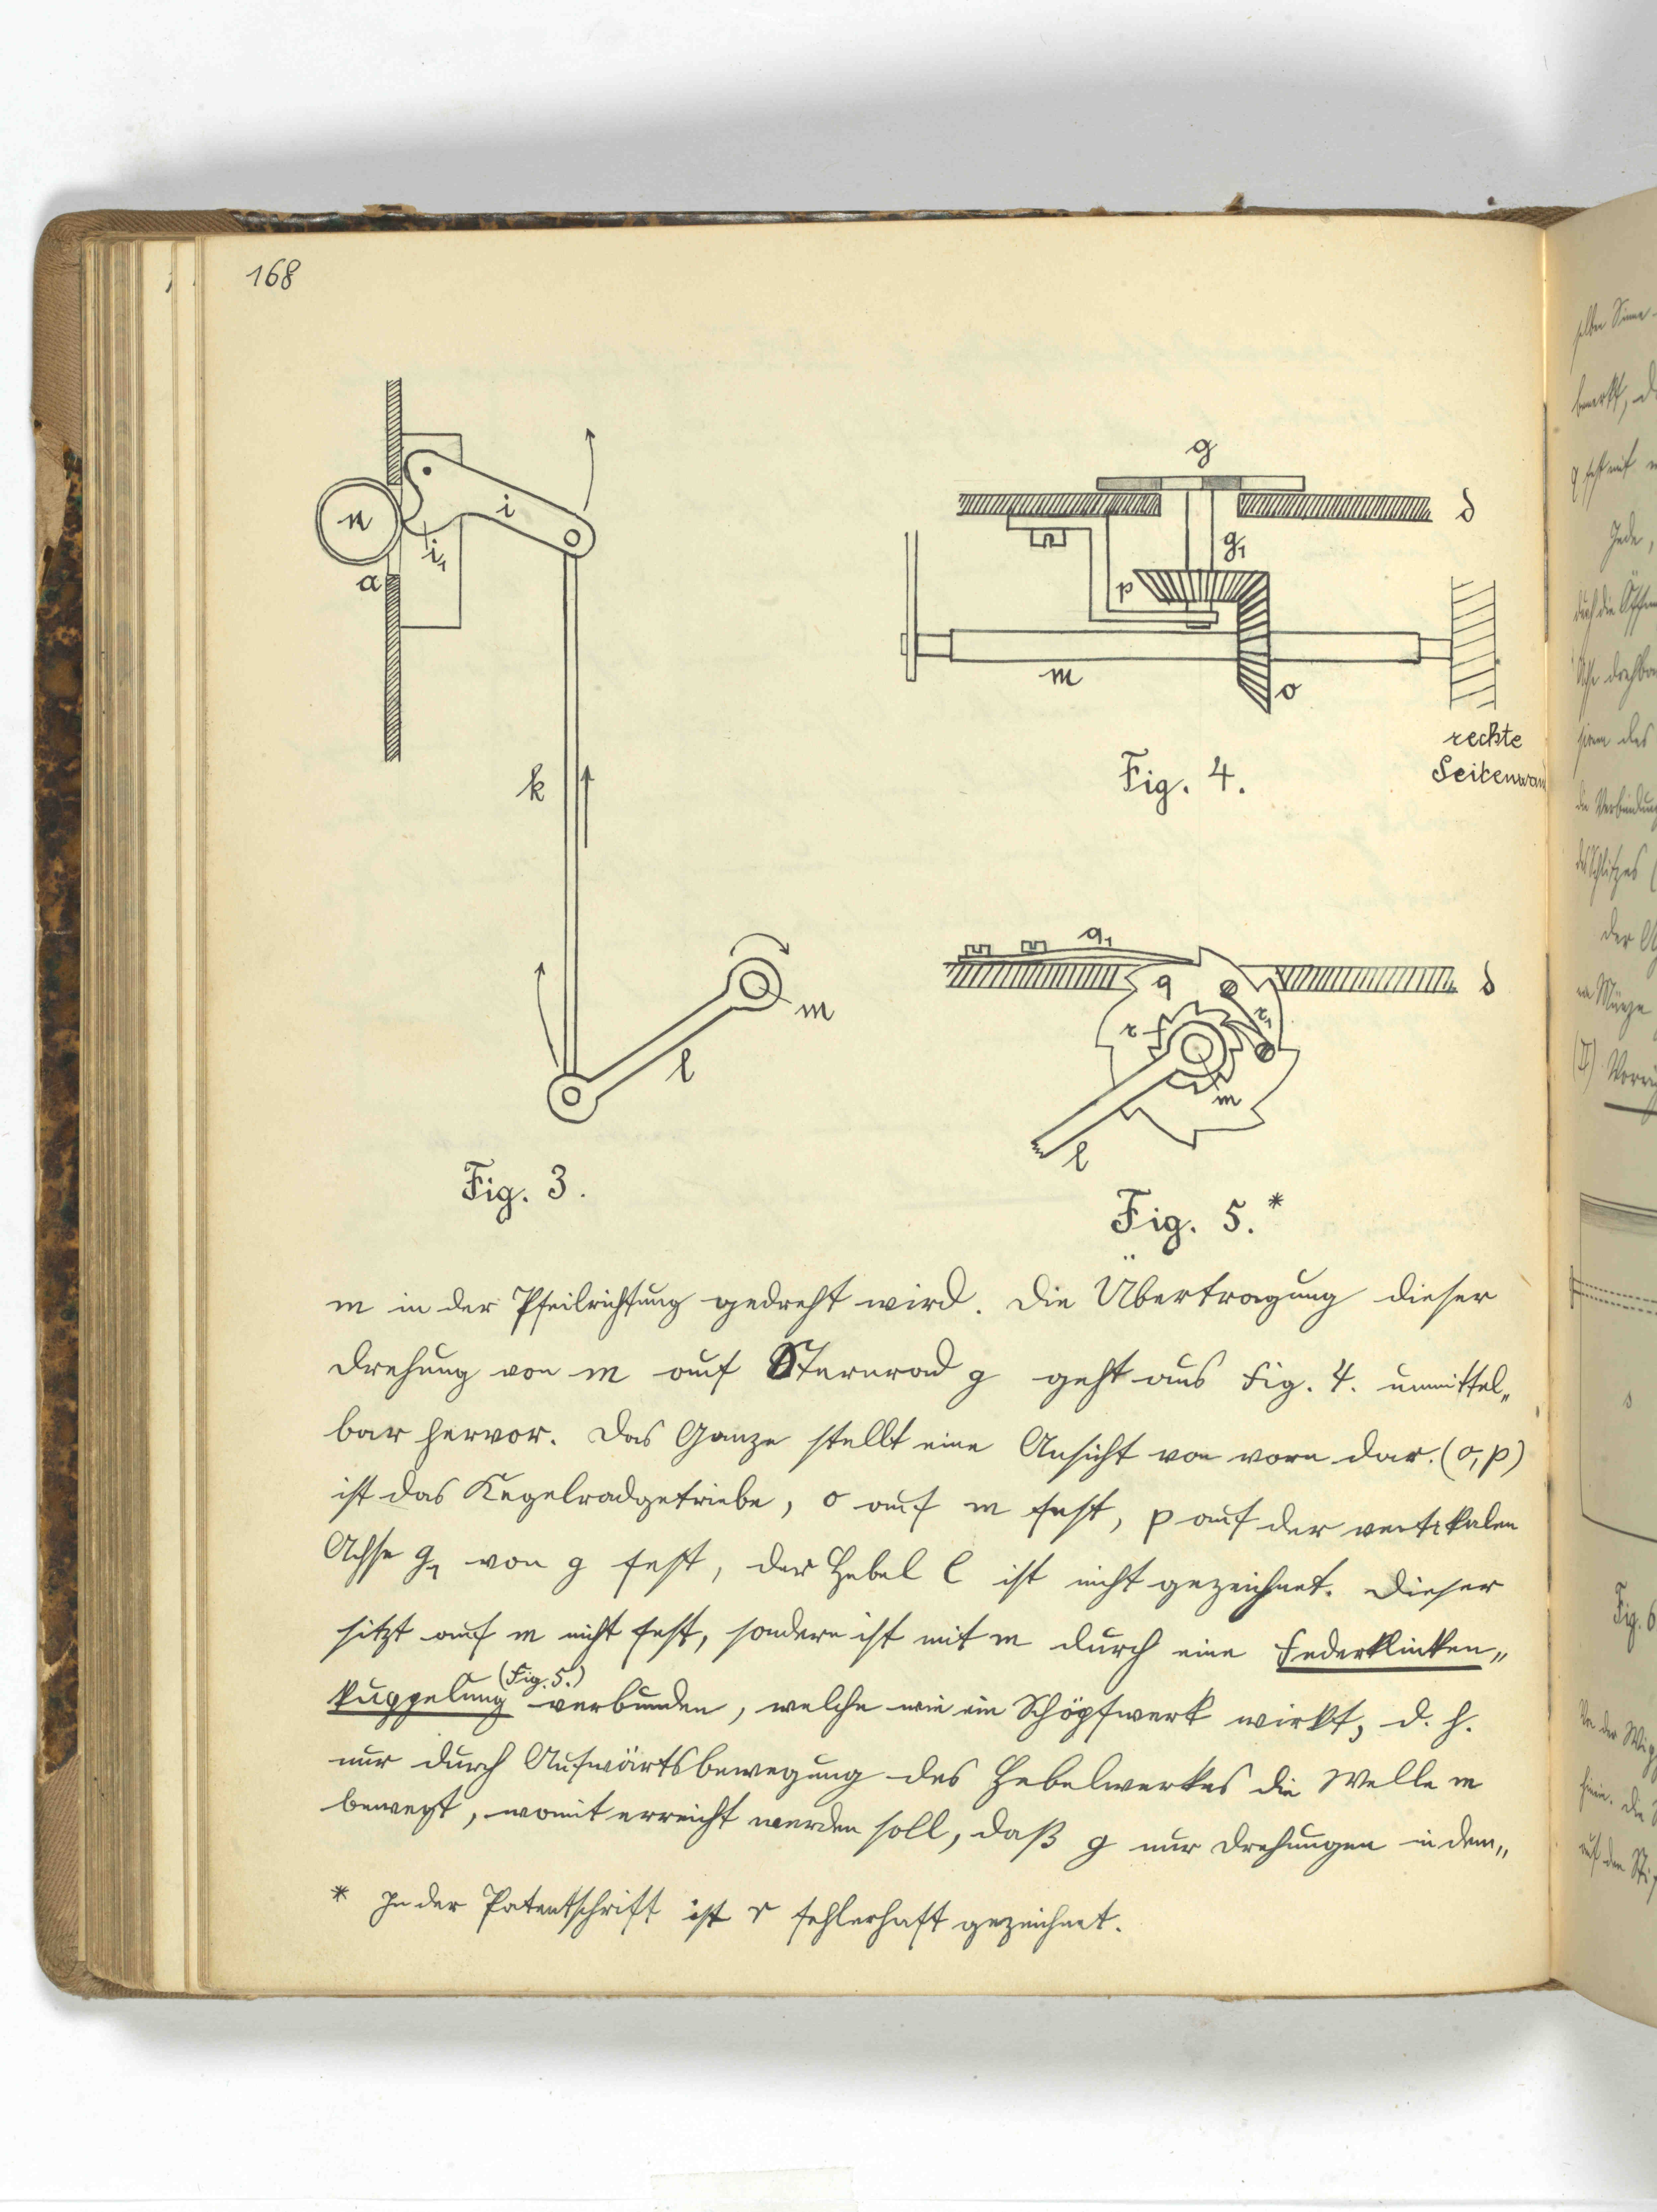 168
n
i
i₁
a
k
l
m
Fig. 3.
g
d
g₁
p
m
o
rechte
Seitenwan
Fig. 4.
q₁
d
q
r
r₁
m
l
Fig. 5.*
m in der Pfeilrichtung gedreht wird. Die Übertragung dieser
Drehung von m auf Sternrad g geht aus Fig. 4. unmittel„
bar hervor. Das Ganze stellt eine Ansicht von vorn dar. (o, p)
ist das Kegelradgetriebe, o auf m fest, p auf der vertikalen
Achse g₁ von g fest, der Hebel l ist nicht gezeichnet. Dieser
sitzt auf m nicht fest, sondern ist mit m durch eine Federklinken„
kuppelung (Fig. 5.) verbunden, welche wie ein Schöpfwerk wirkt, d. h.
nur durch Aufwärtsbewegung des Hebelwerkes die Welle m
bewegt, womit erreicht werden soll, daß g nur Drehungen in dem„
* In der Patentschrift ist r fehlerhaft gezeichnet.
selben Sinne
bemerkt,
Jede,
durch die
des Schlitzes
der
Münze
Fig. 6